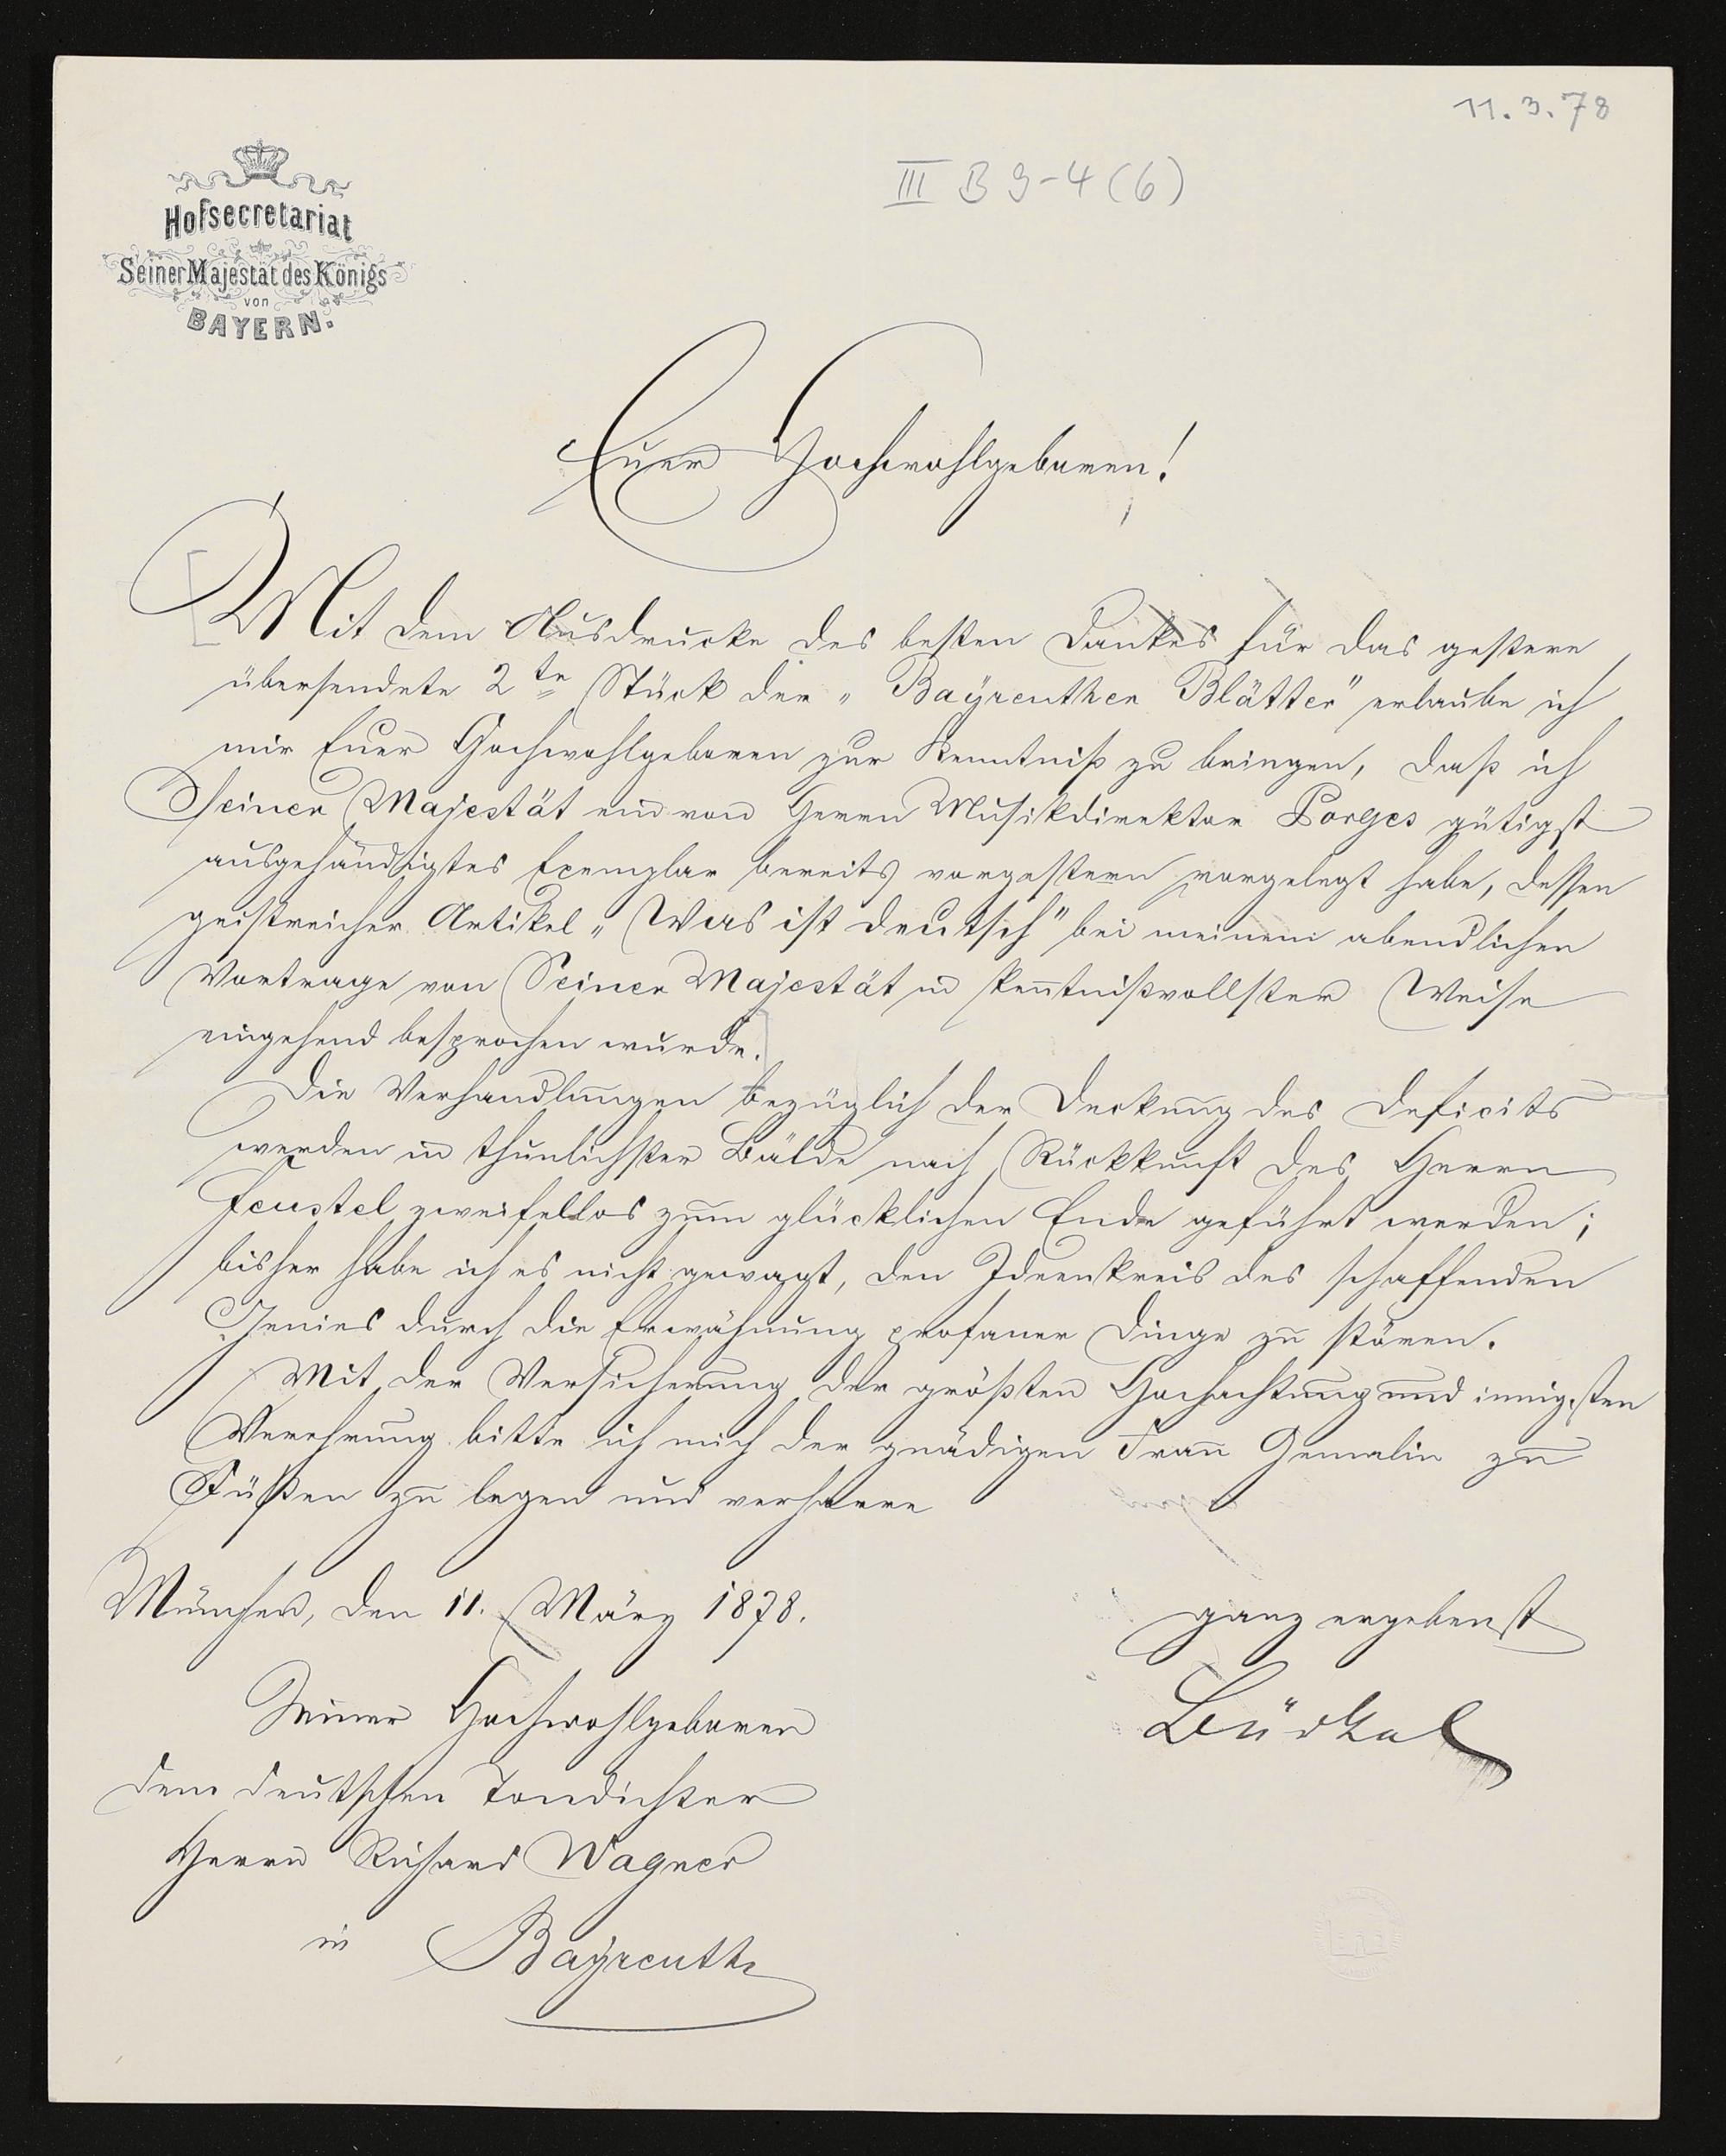 11.3.78
III B 9-4 (6)
Hofsecretariat
Seiner Majestät des Königs
von
BAYERN.
Euer Hochwohlgeboren!
Mit dem Ausdrucke des besten Dankes für das gestern
übersendete 2te Stück der „Bayreuther Blätter" erlaube ich
mir Euer Hochwohlgeboren zur Kenntniß zu bringen, daß ich
Seiner Majestät ein von Herrn Musikdirektor Porges gütigst
ausgehändigtes Exemplar bereits vorgestern vorgelegt habe, dessen
geistreicher Artikel „Was ist deutsch" bei meinem abendlichen
Vortrage von Seiner Majestät in kenntnißvollster Weise
eingehend besprochen wurde.
Die Verhandlungen bezüglich der Deckung des Deficits
werden in thunlichster Bälde nach Rückkunft des Herrn
Feustel zweifellos zum glücklichen Ende geführt werden;
bisher habe ich es nicht gewagt, den Ideenkreis des schaffenden
Genies durch die Erwähnung profaner Dinge zu stören.
Mit der Versicherung der größten Hochachtung und innigsten
Verehrung bitte ich mich der gnädigen Frau Gemalin zu
Füßen zu legen und verharre
München, den 11. März 1878.
ganz ergebenst
Bürkel
Seiner Hochwohlgeboren
dem deutschen Tondichter
Herrn Richard Wagner
in Bayreuth